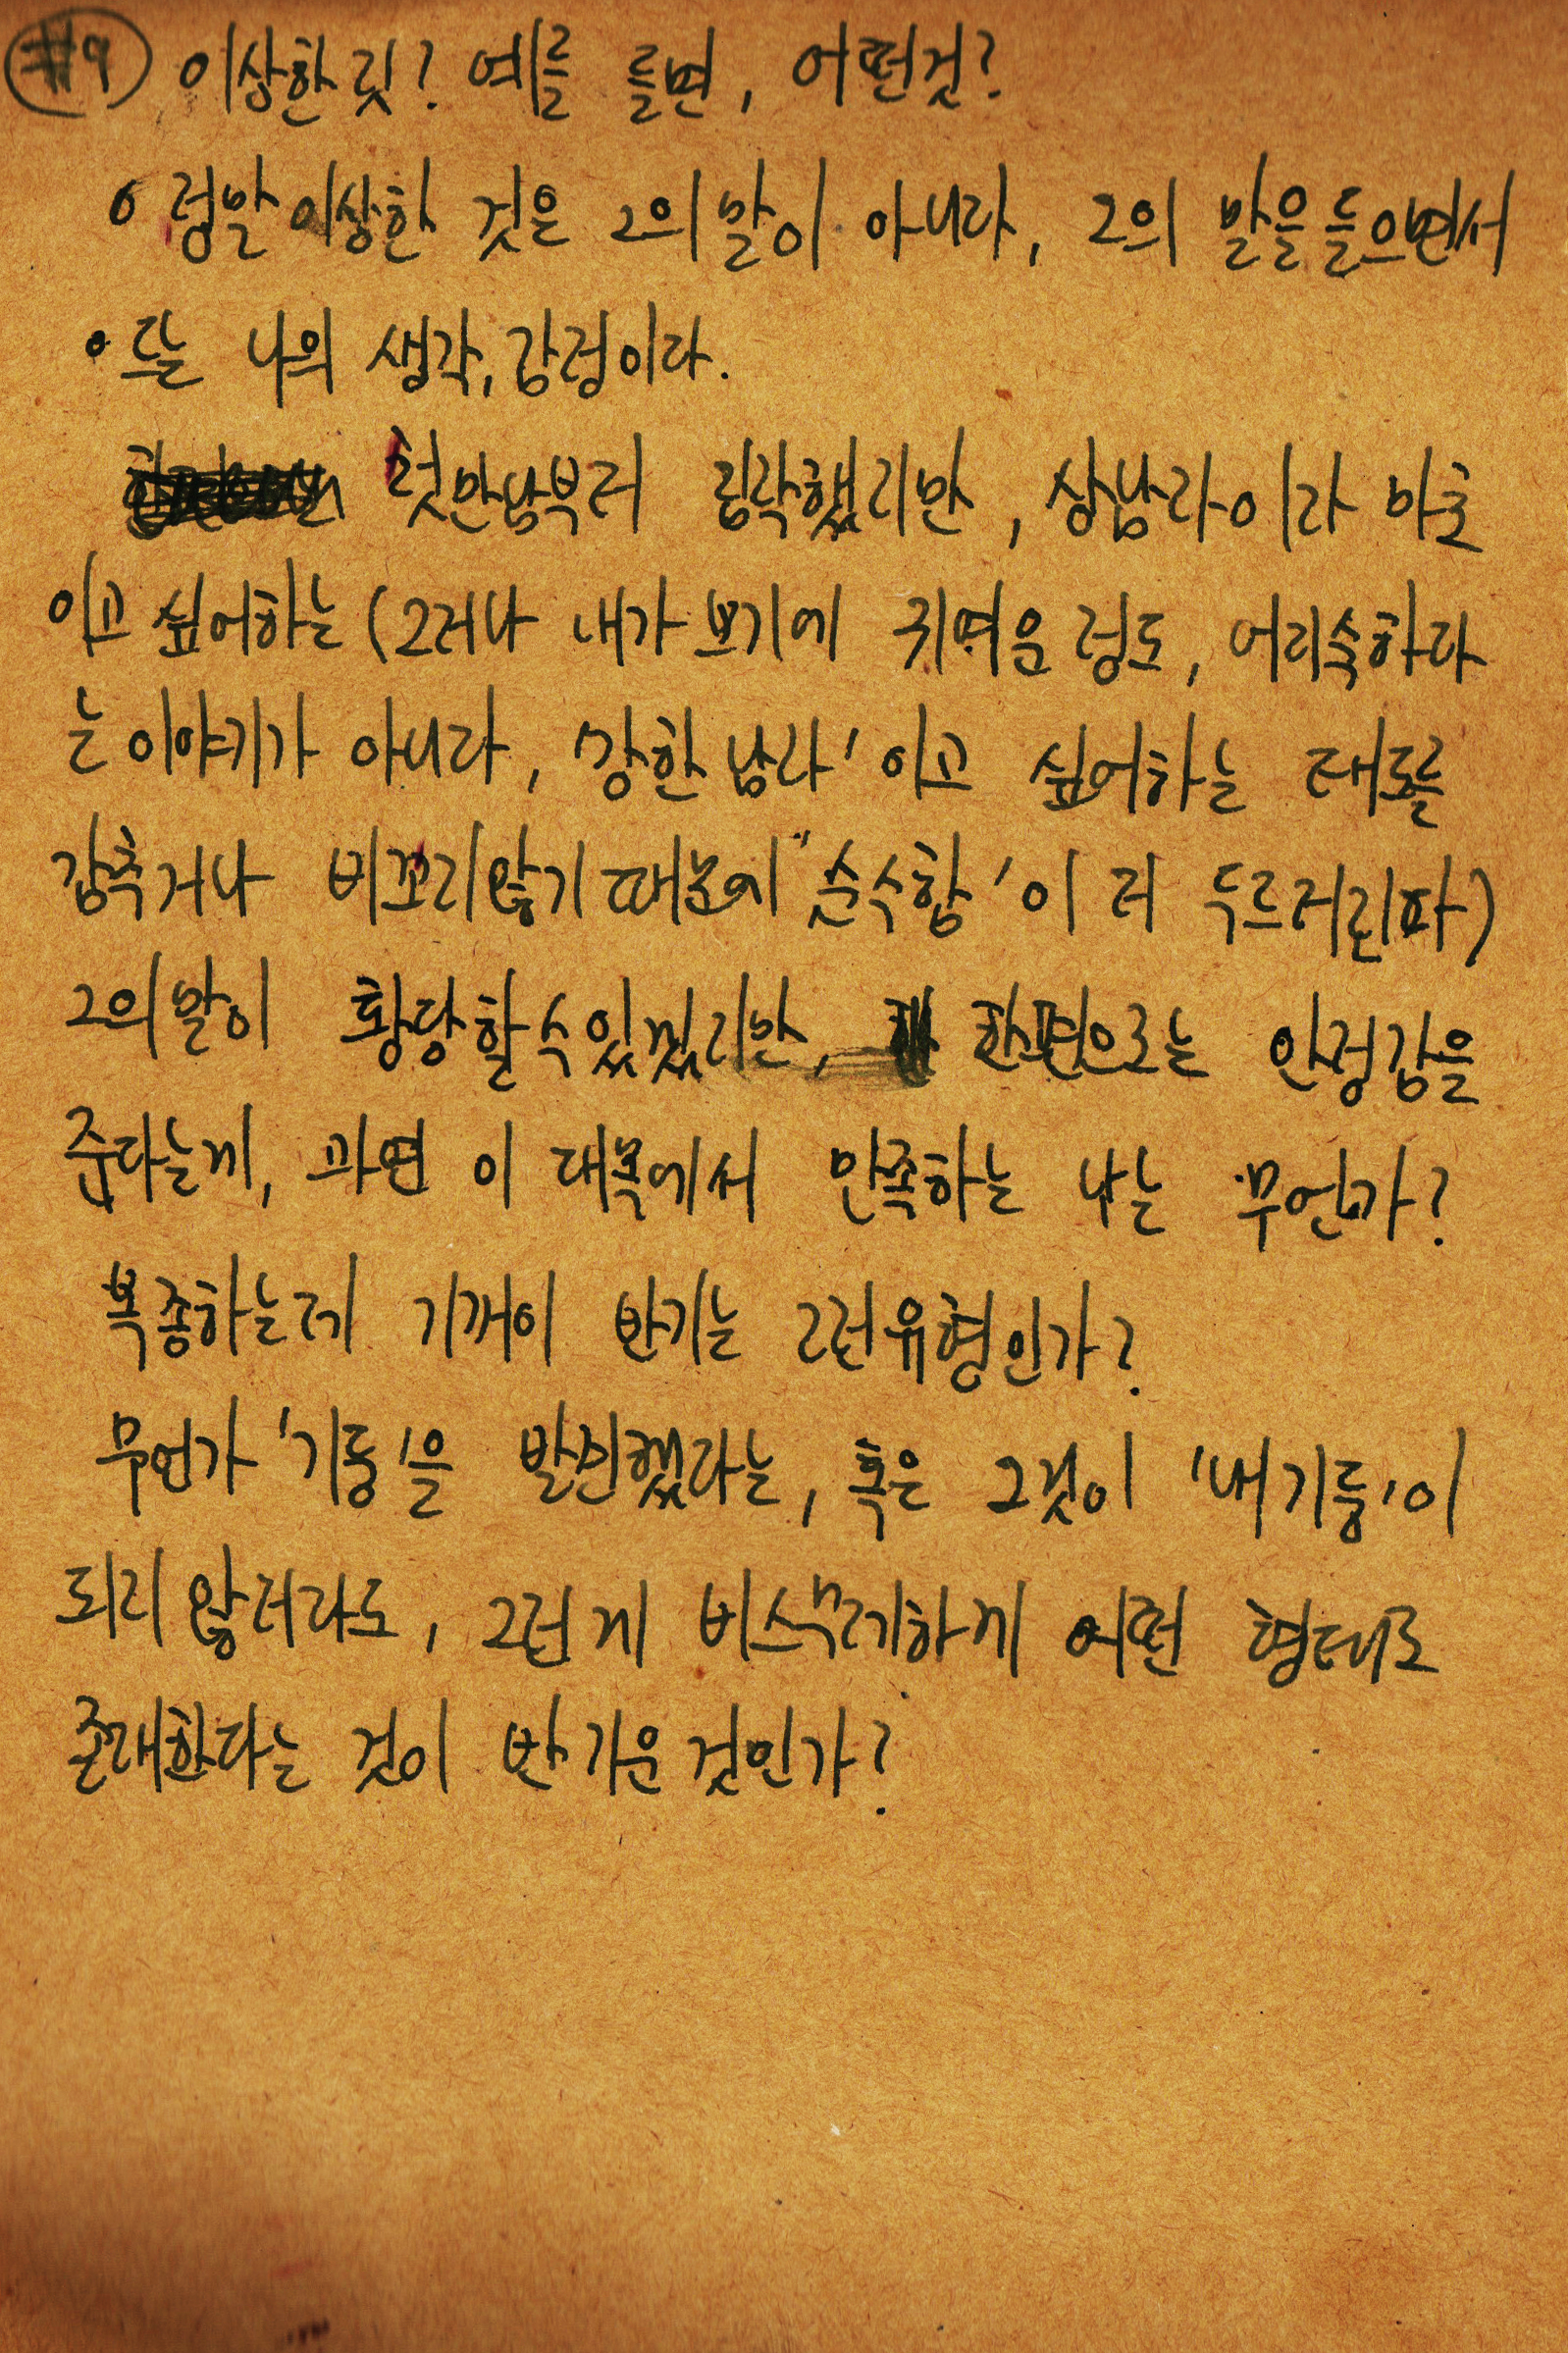 #9 이상한 짓? 예를 들면, 어떤것?
정말 이상한 것은 그의 말이 아니라, 그의 말을 들으면서
드는 나의 생각, 감정이다.
첫만남부터 짐작했지만, 상남자이자 마초
이고 싶어하는 (그러나 내가 보기에 귀여운 정도, 어리숙하다
는 이야기가 아니라, '강한 남자' 이고 싶어하는 태도를
감추거나 비꼬지 않기 때문에 "순수함'이 더 두드러진다)
그의 말이 황당할 수 있었지만, 한편으로는 안정감을
준다는게, 과연 이 대목에서 만족하는 나는 무언가?
복종하는데 기꺼이 반기는 그런 유형인가?
무언가 '기둥'을 발견했다는, 혹은 그것이 '내 기둥'이
되지 않더라도, 그런게 비스무레하게 어떤 형태로
존재한다는 것이 반가운 것인가?